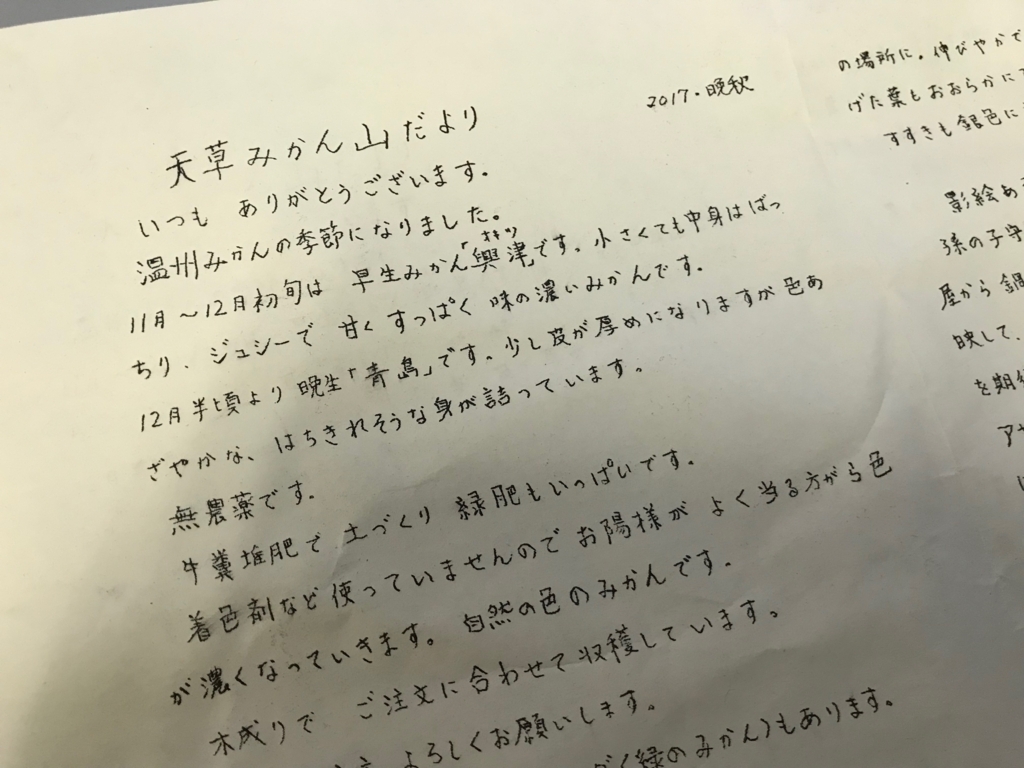 2017.晩秋
天草みかん山だより
いつも ありがとうございます.
温州みかんの季節になりました。
オキツ
11月〜12月初旬は 早生みかん「興津」です。小さくても中身はばっ
ちり、ジュシーで 甘く すっぱく 味の濃いみかんです。
12月半頃より 晩生「青島」です。少し皮が厚めになりますが 色あ
ざやかな、はちきれそうな身が詰っています。
無農薬です.
牛糞堆肥で 土づくり 緑肥もいっぱいです.
着色剤など使っていませんのでお陽様が よく当る方がら色
が濃くなっていきます。 自然の色のみかんです.
木成りで ご注文に合わせて収穫しています。
よろしくお願いします。
(緑のみかん)もあります。
の場所に.伸びやかで
げた葉もおおらかに
すすきも銀色に
影絵あ
孫の子守
屋から 鍋
映して、
を期待